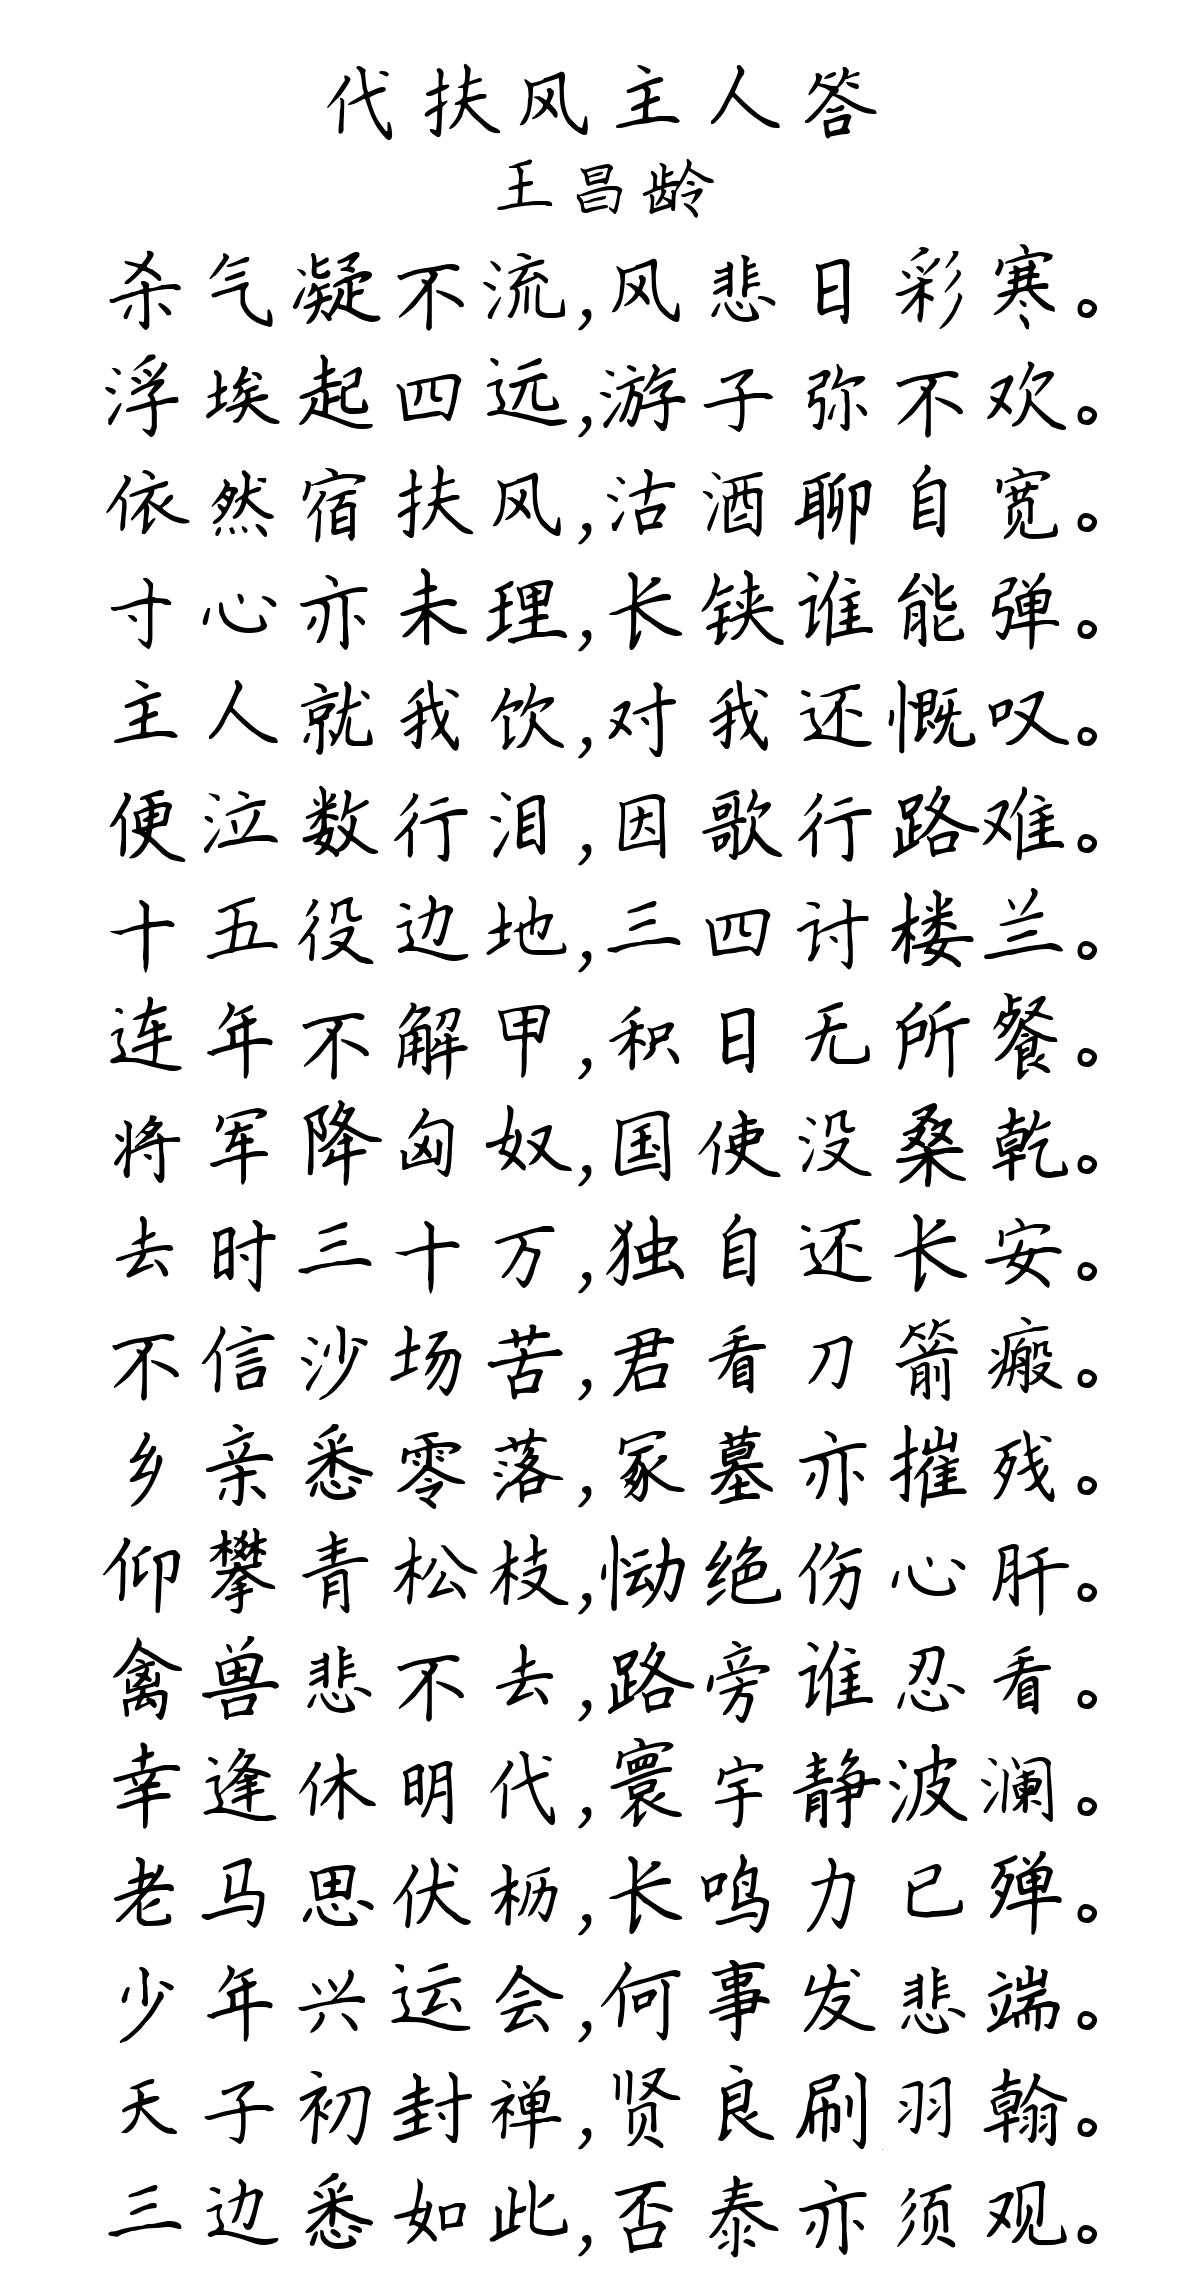 代扶风主人答
王昌龄
杀气凝不流,风悲日彩寒。
浮埃起四远,游子弥不欢。
依然宿扶风,沽酒聊自宽。
寸心亦未理,长铗谁能弹。
主人就我饮,对我还慨叹。
便泣数行泪,因歌行路难。
十五役边地,三四讨楼兰。
连年不解甲,积日无所餐。
将军降匈奴,国使没桑乾。
去时三十万,独自还长安。
不信沙场苦,君看刀箭瘢。
乡亲悉零落,冢墓亦摧残。
仰攀青松枝,恸绝伤心肝。
禽兽悲不去,路旁谁忍看。
幸逢休明代,寰宇静波澜。
老马思伏枥,长鸣力已殚。
少年兴运会,何事发悲端。
天子初封禅,贤良刷羽翰。
三边悉如此,否泰亦须观。